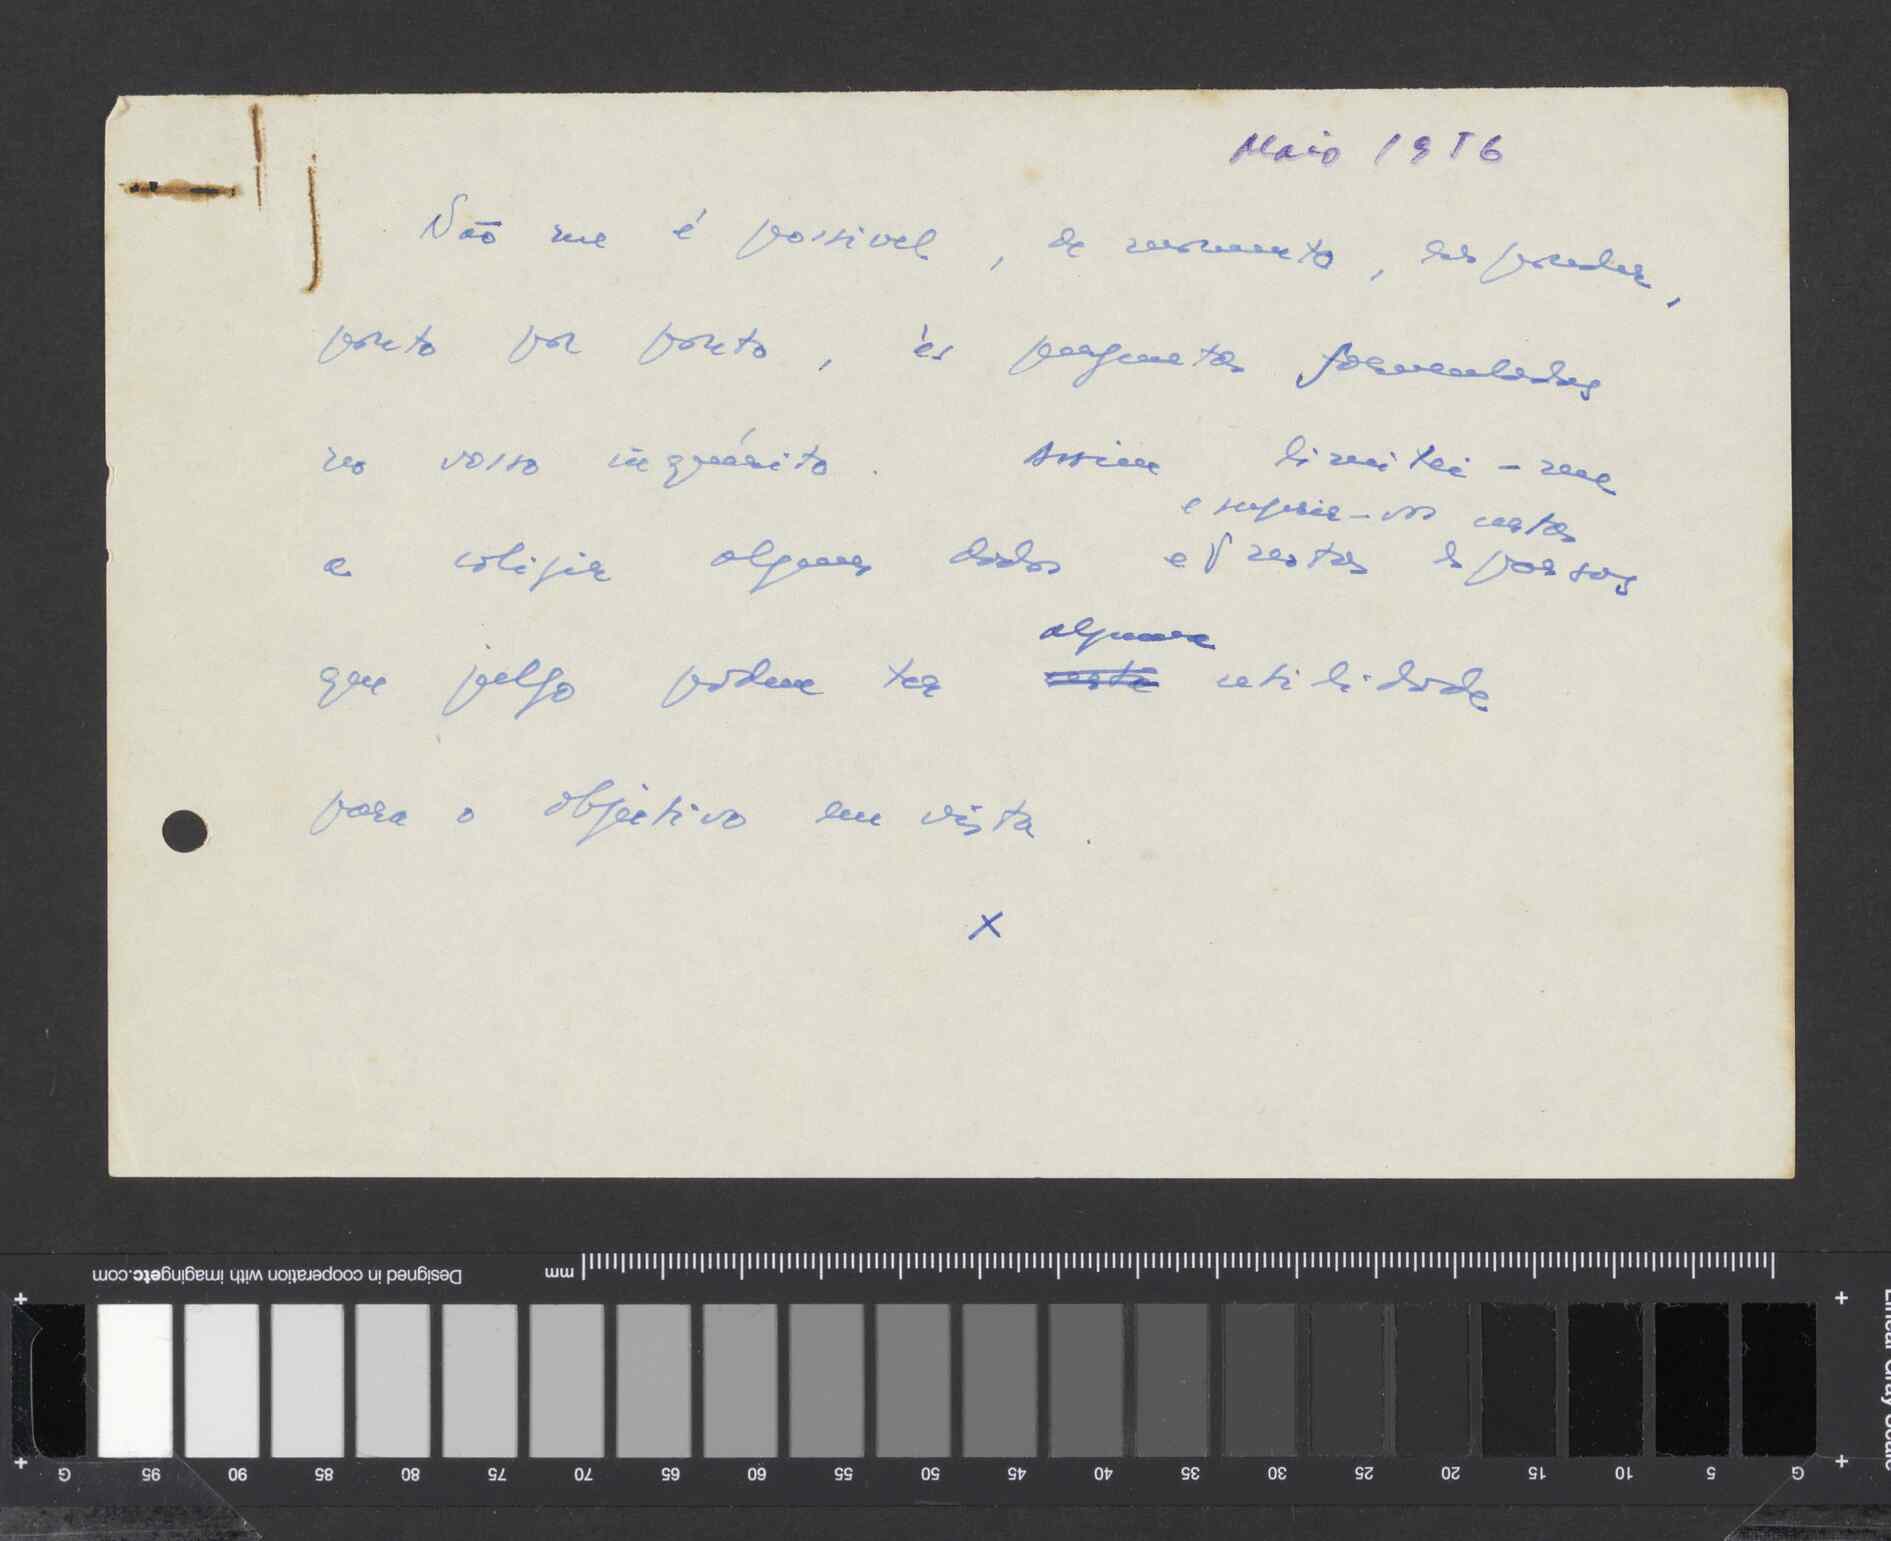 Maio 1956
Não me é possivel, de momento, responder,
ponto por ponto, ás perguntas formuladas
no vosso inquérito. Assim limitei-me
e sugerir-vos certas
a coligir alguns dados e notas esparsos
alguma
que julgo pódem ter utilidade
para o objectivo em vista.
x
mm
Designed in cooperation with imagingetc.com
G 95 90 85 80 75 70 65 60 55 50 45 40 35 30 25 20 15 10 5 G
Linear Gray Scale